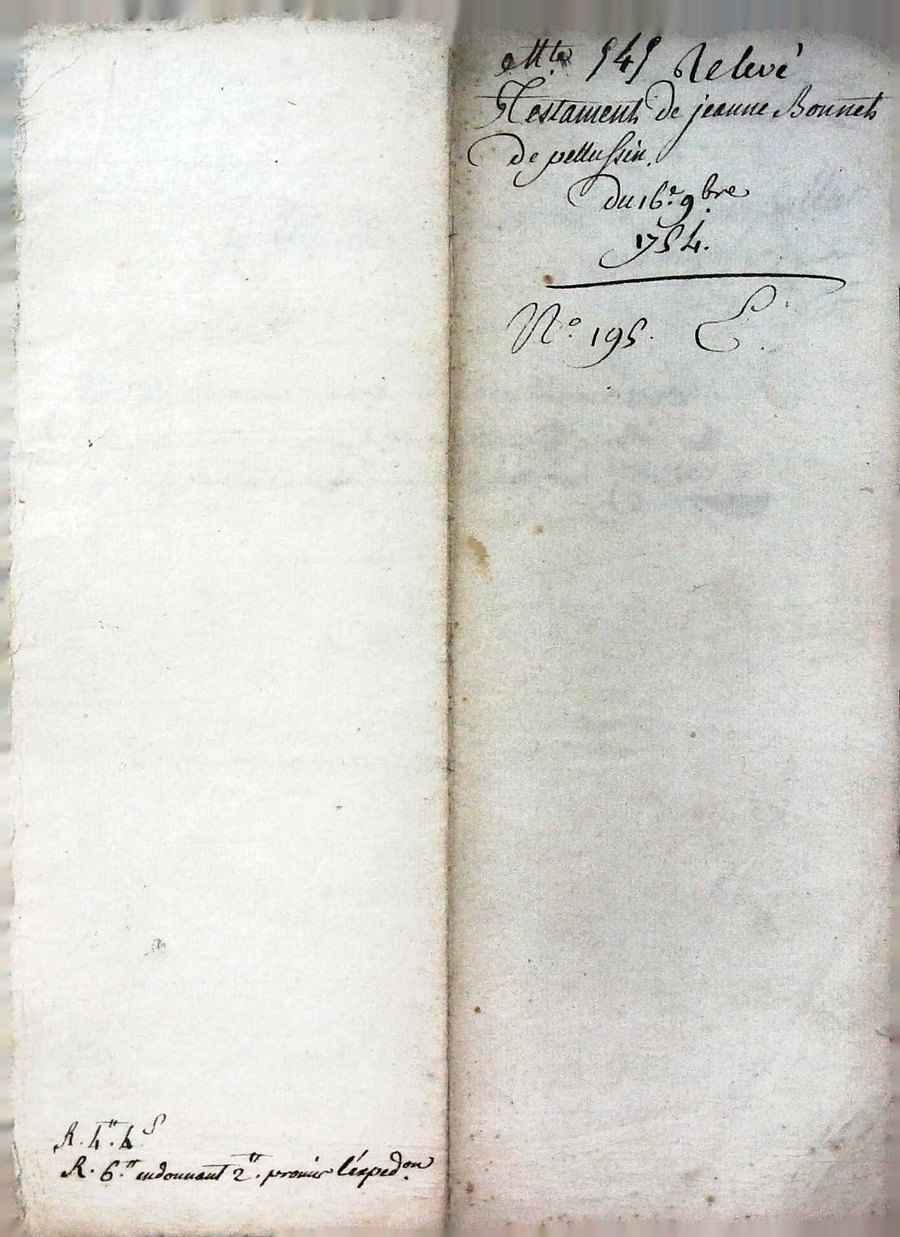 Mte 545 Relevé
Testament de jeanne Bonnet
de pellussin.
du 16e. 9.bre
1754.
No. 195. E.
R. 4".. 4s
R. 6" en donnant 2". promis l'éxpedon.